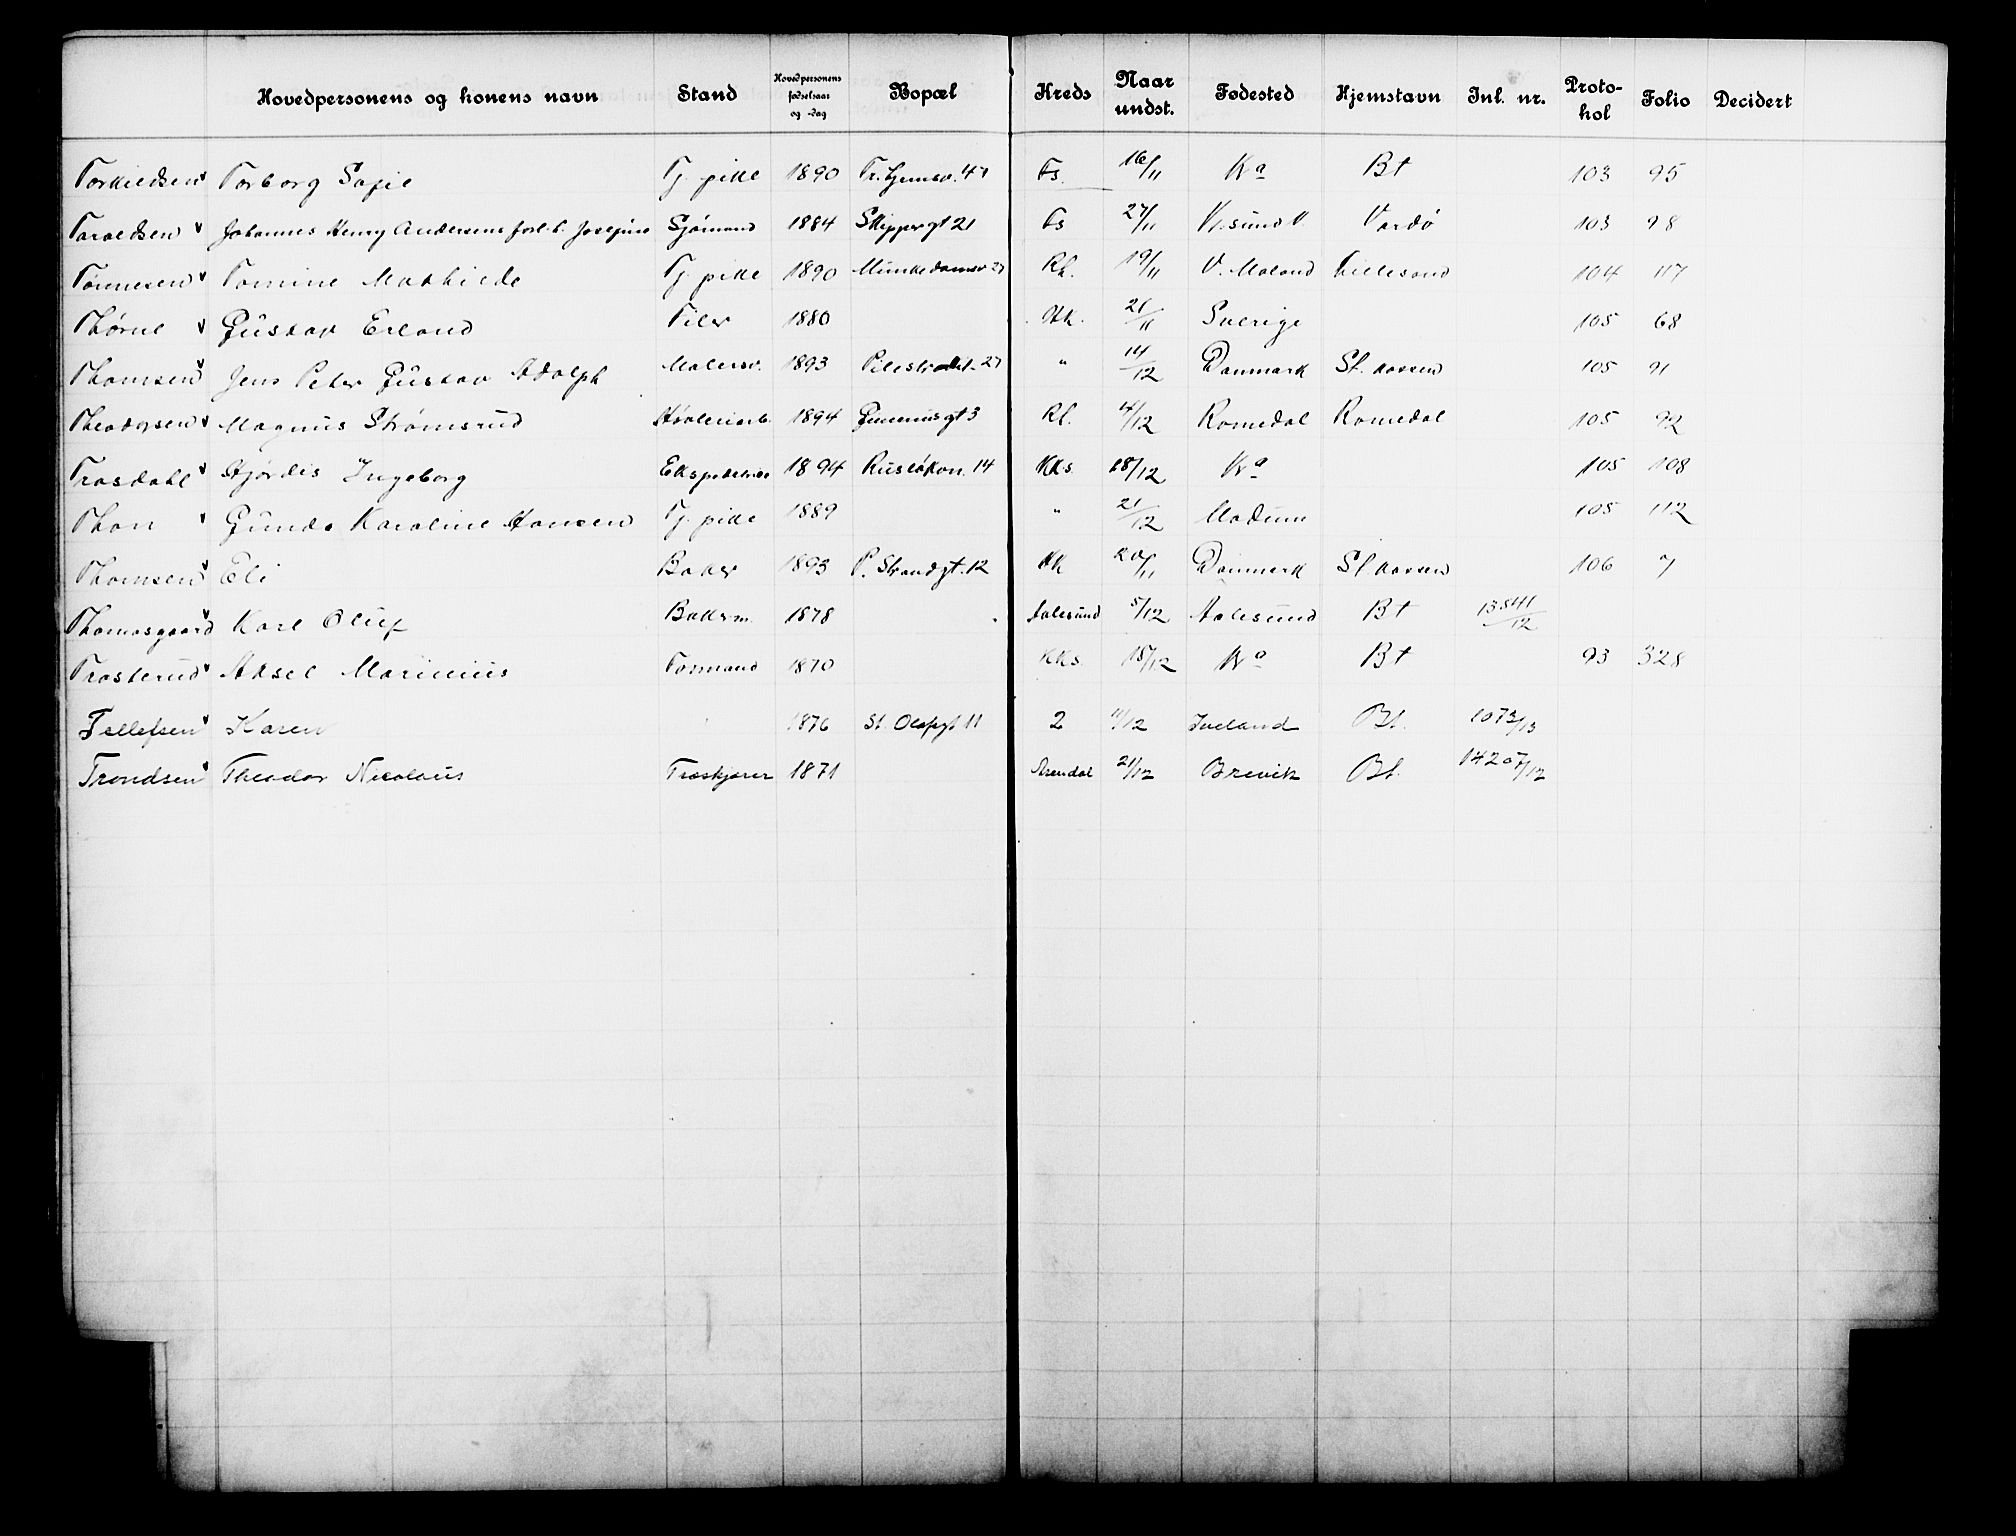 Hovedpersonens og konens navn Stand Hovedpersonens fødselsaar og -dag Bopæl Kreds Naar undst. Fødested Hjemstavn Inl. nr. Protokol Folio Decidert
Torkildsen Torborg Sofie Tj. pike 1890 47 Fs. 16/11 Kra Bt 103 95
Taraldsen Johannes Henry Andersens forl. h. Josefine Sjømand 1884 Skippergt 21 Fs 27/11 Kr.sund N. Vardø 103 98
Tønnesen Tomine Mathilde Tj. pike 1890 Munkedamsv 27 Rk. 19/11 V. Moland Lillesand 104 117
Thørne Gustav Erland Filer 1880 Hk. 21/11 Sverige 105 68
Thomsen Jens Peter Gustav Adolph Malersv. 1893 Pilestrædet 27 " 14/12 Danmark St. havsen 105 91
Theodorsen Magnus Strømsrud Høvleriarb. 1894 Grønnegt 3 Rk. 4/12 Romedal Romedal 105 92
Trosdahl Hjørdis Ingeborg Ekspeditrice 1894 Ruseløkvn. 14 KKs 18/12 Kra 105 108
Thon Gunda Karoline Hansen Tj. pike 1889 " 21/12 Modum 105 112
Thomsen Eli Baker 1893 P. Strandgt. 12 Hk 20/11 Danmark St havsen 106 7
Thomasgaard Karl Oluf Bakerm. 1878 Aalesund 5/12 Aalesund Bt 13541/12
Trosterud Aksel Marinius Tømmand 1870 KKs. 18/12 Kra Bt 93 328
Tellefsen Karen 1876 St. Olafsgt 11 2 11/12 Iveland Bt. 1073/13
Trondsen Theodor Nicolaus Træskjærer 1871 Arendal 21/12 Brevik Bt. 14207/12